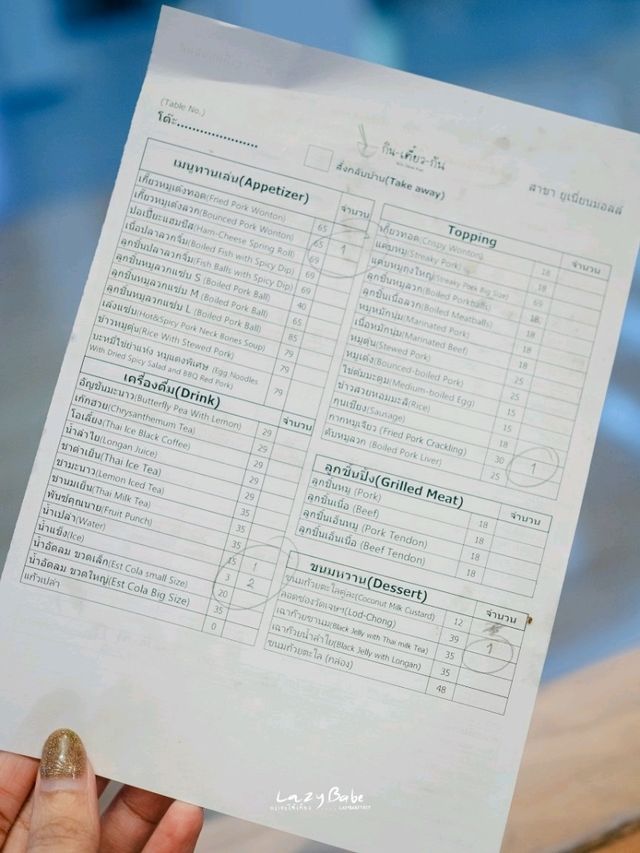 (Table No.)
โต๊ะ.....................
กิน-เตี๋ยว-กัน
สั่งกลับบ้าน(Take away)
สาขา ยูเนี่ยนมอลล์
เมนูทานเล่น(Appetizer) จำนวน
เกี๊ยวหมูเด้งทอด(Fried Pork Wonton) 65
เกี๊ยวหมูเด้งลวก(Bounced Pork Wonton) 65 1
ปอเปี๊ยะแฮมชีส(Ham-Cheese Spring Roll) 69
เนื้อปลาลวกจิ้ม(Boiled Fish with Spicy Dip) 69
ลูกชิ้นปลาลวกจิ้ม(Fish Balls with Spicy Dip) 69
ลูกชิ้นหมูลวกแซ่บ S (Boiled Pork Ball) 40
ลูกชิ้นหมูลวกแซ่บ M (Boiled Pork Ball) 65
ลูกชิ้นหมูลวกแซ่บ L (Boiled Pork Ball) 85
เล้งแซ่บ(Hot&Spicy Pork Neck Bones Soup) 79
ข้าวหมูตุ๋น(Rice With Stewed Pork) 79
บะหมี่ไข่ยำแห้ง หมูแดงพิเศษ (Egg Noodles
With Dried Spicy Salad and BBQ Red Pork) 79
เครื่องดื่ม(Drink) จำนวน
อัญชันมะนาว(Butterfly Pea With Lemon) 29
เก๊กฮวย(Chrysanthemum Tea) 29
โอเลี้ยง(Thai Ice Black Coffee) 29
น้ำลำไย(Longan Juice) 29
ชาดำเย็น(Thai Ice Tea) 29
ชามะนาว(Lemon Iced Tea) 35
ชานมเย็น(Thai Milk Tea) 35
พันช์คุณนาย(Fruit Punch) 35
น้ำเปล่า(Water) 15 1
น้ำแข็ง(Ice) 3 2
น้ำอัดลม ขวดเล็ก(Est Cola small Size) 20
น้ำอัดลม ขวดใหญ่(Est Cola Big Size) 35
แก้วเปล่า 0
Topping จำนวน
เกี๊ยวทอด(Crispy Wonton) 18
แคบหมู(Streaky Pork) 18
แคบหมูถุงใหญ่(Streaky Pork Big Size) 69
ลูกชิ้นหมูลวก(Boiled Porkballs) 18
ลูกชิ้นเนื้อลวก(Boiled Meatballs) 18
หมูหมักนุ่ม(Marinated Pork)
เนื้อหมักนุ่ม(Marinated Beef)
หมูตุ๋น(Stewed Pork)
หมูเด้ง(Bounced-boiled Pork) 25
ไข่ต้มมะตูม(Medium-boiled Egg) 15
ข้าวสวยหอมมะลิ(Rice) 15
กุนเชียง(Sausage) 18
กากหมูเจียว (Fried Pork Crackling) 30 1
ตับหมูลวก (Boiled Pork Liver) 25
ลูกชิ้นปิ้ง(Grilled Meat) จำนวน
ลูกชิ้นหมู (Pork) 18
ลูกชิ้นเนื้อ (Beef) 18
ลูกชิ้นเอ็นหมู (Pork Tendon) 18
ลูกชิ้นเอ็นเนื้อ (Beef Tendon) 18
ขนมหวาน(Dessert) จำนวน
ขนมถ้วยตะไลคู่ละ(Coconut Milk Custard) 12
ลอดช่องวัดเจษฯ(Lod-Chong) 39 1
เฉาก๊วยชานม(Black Jelly with Thai milk Tea) 35
เฉาก๊วยน้ำลำไย(Black Jelly with Longan) 35
ขนมถ้วยตะไล (กล่อง) 48
LazyBabe